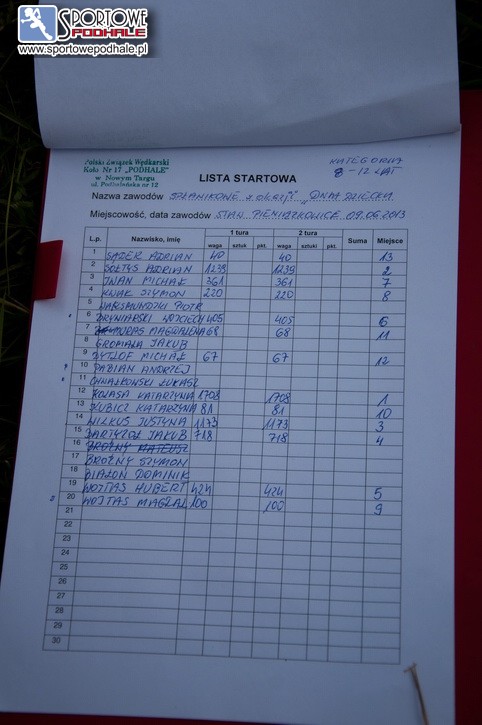 SPORTOWE
PODHALE
www.sportowepodhale.pl
Polski Związek Wędkarski
Koło Nr 17 "PODHALE"
w Nowym Targu
ul. Podhalańska nr 12
KATEGORIA
8-12 LAT
LISTA STARTOWA
Nazwa zawodów SPŁAWIKOWE z okazji "DNIA DZIECKA
Miejscowość, data zawodów STAW 09.06.2013
L.p. Nazwisko, imię 1 tura 2 tura Suma Miejsce
waga sztuk pkt. waga sztuki pkt.
1 ADRIAN 40 40 13
2 SOŁTYS ADRIAN 1239 1239 2
3 IWAN MICHAŁ 361 361 7
4 KWAK SZYMON 220 220 8
5 PIOTR
6 DRYNIARSKI WOJCIECH 405 405 6
7 MAGDALENA 68 68 11
8 GROMALA JAKUB
9 MICHAŁ 67 67 12
10 FABIAN ANDRZEJ
11 CHWAŁKOWSKI ŁUKASZ
12 KOLASA KATARZYNA 1708 1708 1
13 KUBICZ KATARZYNA 81 81 10
14 WILKUS JUSTYNA 1173 1173 3
15 JAKUB 718 718 4
16 BROŻNY MATEUSZ
17 BROŻNY SZYMON
18 BŁAŻON DOMINIK
19 WOJTAS HUBERT 424 424 5
20 WOJTAS 100 100 9
21
22
23
24
25
26
27
28
29
30